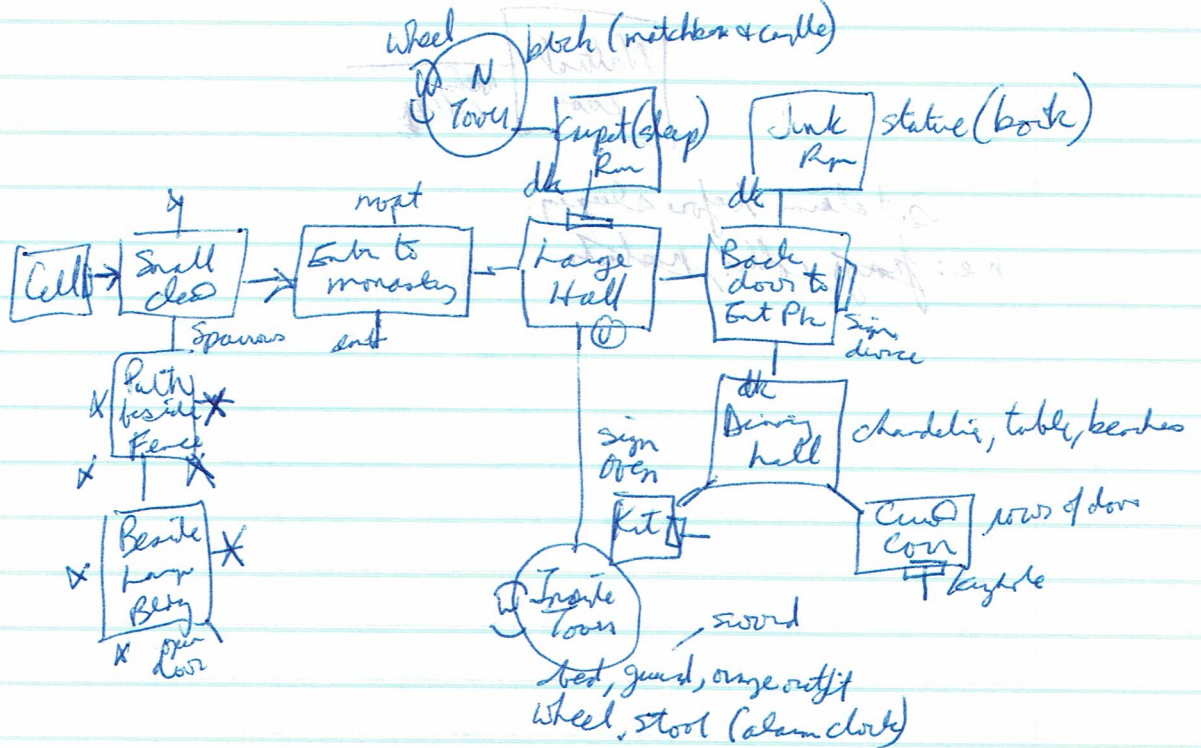 wheel
N
Tower
(matchbox & candle)
Carpet (sleep)
Rm
Junk
Rm
statue (book)
dk
dk
moat
Cell
Small
Entr to
monastery
Large
Hall
U
Back
door to
Ent Pk
sign,
device
Sparrows
Path
beside
Fence
X
X
X
X
dk
Dining
hall
chandelier, table, benches
sign
oven
Kit
Corr
rows of doors
keyhole
Beside
Large
Bldg
X
X
X
open
door
Inside
Tower
sword
bed, guard, orange outfit
wheel, stool (alarm clock)